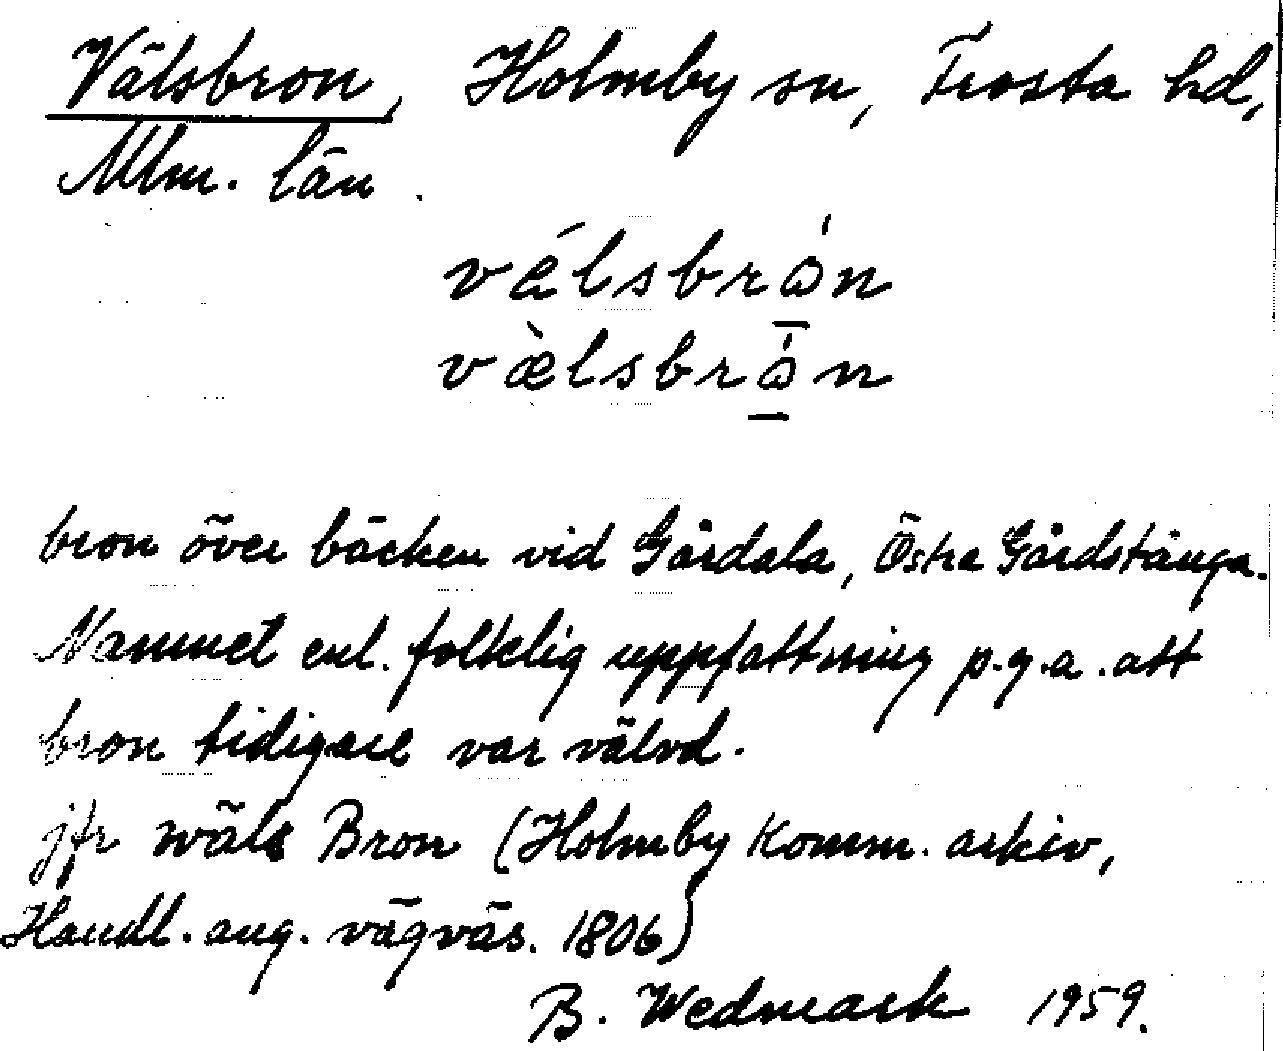 Välsbron, Holmby sn, Frosta hd,
Mlm. län.
vélsbrón
vὰlsbrón
bron över bäcken vid Gårdala, Östra Gårdstånga.
Namnet enl. folklig uppfattning p.g.a. att
bron tidigare var välvd.
jfr wäls Bron (Holmby Komm. arkiv,
Handl. ang. vägväs. 1806)
B. Wedmark 1959.